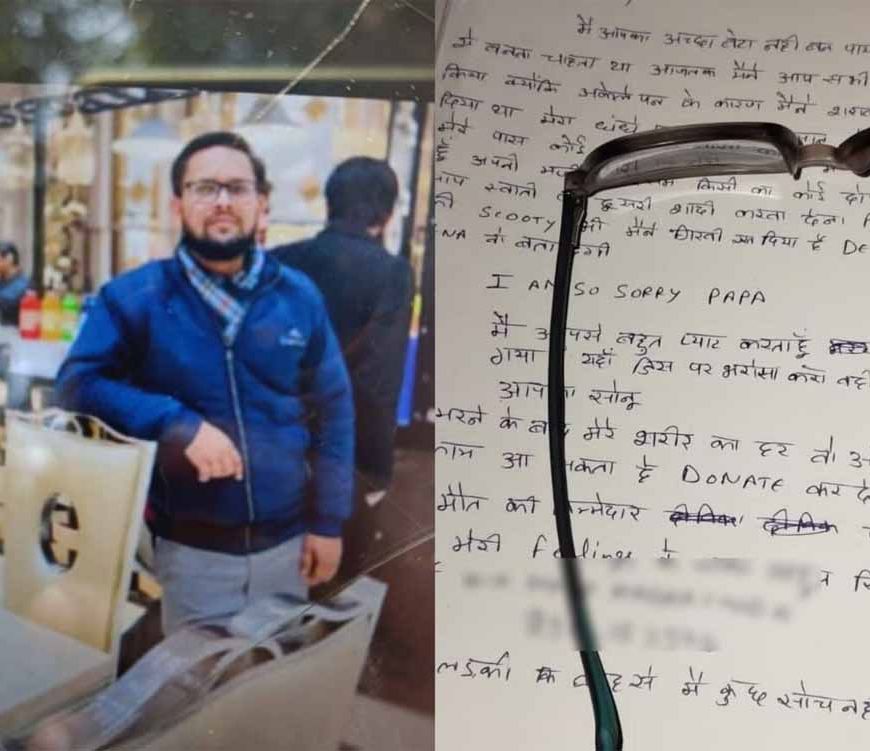 मै आपका अच्छा बेटा नही बन पाय
मै बनना चाहता था आजतक मैने आप सभी
किया क्योंकि अकेले पन के कारण मैने शराब
दिया था मेरा धंधे
मेरे पास कोई
अपनी किसी का कोई दो
आप स्वाती दूसरी शादी करवा देना
SCOOTY भी मैने गिरवी रख दिया है DE
NA वो बता देगी
I AM SO SORRY PAPA
मै आपसे बहुत प्यार करता हूँ
गया यहाँ जिस पर भरोसा करो वही
आपका सोनू
मरने के बाद मेरे शरीर का हर वो अ
काम आ सकता है DONATE कर दे
मौत की जिम्मेदार
मेरी feelings
लड़की की वजह से मै कुछ सोच नह